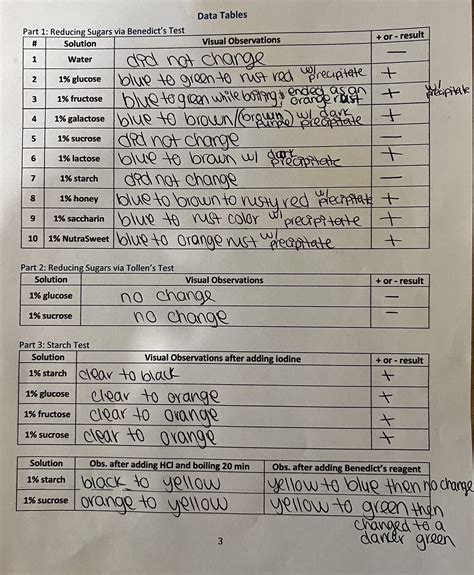 Data Tables
Part 1: Reducing Sugars via Benedict's Test
# Solution Visual Observations + or - result
1 Water did not change —
2 1% glucose blue to green to rust red w/ precipitate +
3 1% fructose blue to green while boiling, ended as an orange rust + w/ precipitate
4 1% galactose blue to brown/(brown w/ dark precipitate +
5 1% sucrose did not change —
6 1% lactose blue to brown w/ dark precipitate +
7 1% starch did not change —
8 1% honey blue to brown to rusty red w/ precipitate +
9 1% saccharin blue to rust color w/ precipitate +
10 1% NutraSweet blue to orange rust w/ precipitate +
Part 2: Reducing Sugars via Tollen's Test
Solution Visual Observations + or - result
1% glucose no change —
1% sucrose no change —
Part 3: Starch Test
Solution Visual Observations after adding iodine + or - result
1% starch clear to black +
1% glucose clear to orange +
1% fructose clear to orange +
1% sucrose clear to orange +
Solution Obs. after adding HCl and boiling 20 min Obs. after adding Benedict's reagent
1% starch black to yellow yellow to blue then no change
1% sucrose orange to yellow yellow to green then
changed to a
darker green
3